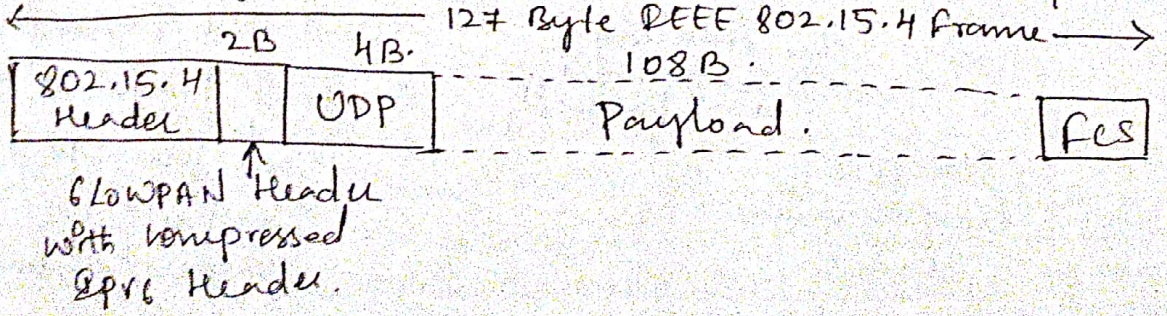 127 Byte IEEE 802.15.4 Frame
2B 4B. 108 B.
802.15.4 UDP Payload. FCS
Header
6LOWPAN Header
with compressed
Ipv6 Header.